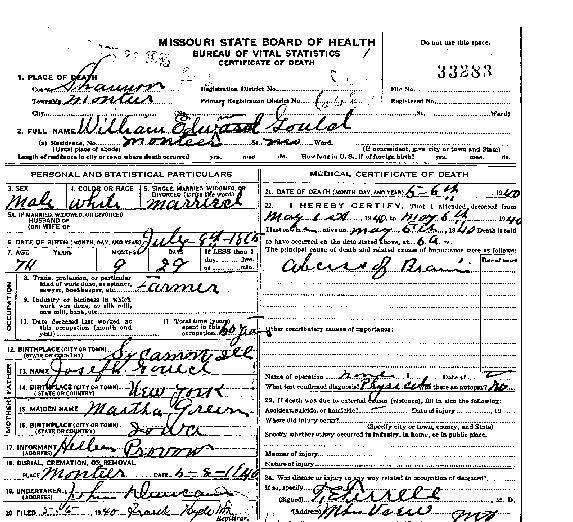 MISSOURI STATE BOARD OF HEALTH
BUREAU OF VITAL STATISTICS
CERTIFICATE OF DEATH
Do not use this space.
33283
1. PLACE OF DEATH
County Shannon Registration District No. File No.
Township Montier Primary Registration District No. Registered No.
City No. St. Ward)
2. FULL NAME William Edward Gould
(a) Residence, No. Montier St. Mo Ward.
(Usual place of abode) (If nonresident, give city or town and State)
Length of residence in city or town where death occurred yrs. mos. ds. How long in U. S., if of foreign birth? yrs. mos. ds.
PERSONAL AND STATISTICAL PARTICULARS
3. SEX 4. COLOR OR RACE 5. SINGLE, MARRIED, WIDOWED, OR DIVORCED (write the word)
Male White married
5A. IF MARRIED, WIDOWED, OR DIVORCED
HUSBAND OF
(OR) WIFE OF
6. DATE OF BIRTH (MONTH, DAY, AND YEAR) July
7. AGE YEARS MONTHS DAYS If LESS than 1
74 9 29
OCCUPATION
8. Trade, profession, or particular kind of work done, as spinner, sawyer, bookkeeper, etc. Farmer
9. Industry or business in which work was done, as silk mill, saw mill, bank, etc.
10. Date deceased last worked at this occupation (month and year)
11. Total time (years) spent in this occupation
12. BIRTHPLACE (CITY OR TOWN) Sycamore Ill
(STATE OR COUNTRY)
FATHER
13. NAME Joseph Gould
14. BIRTHPLACE (CITY OR TOWN) New York
(STATE OR COUNTRY)
MOTHER
15. MAIDEN NAME Martha Green
16. BIRTHPLACE (CITY OR TOWN) Iowa
(STATE OR COUNTRY)
17. INFORMANT
(ADDRESS)
18. BURIAL, CREMATION, OR REMOVAL
PLACE Montier DATE 5-8-1940
19. UNDERTAKER John Duncan
(ADDRESS)
20. FILED 1940 Frank Hyde
Registrar.
MEDICAL CERTIFICATE OF DEATH
21. DATE OF DEATH (MONTH, DAY, AND YEAR) 5-6th 1940
22. I HEREBY CERTIFY, That I attended deceased from
May 1st 1940, to May 6th 1940
I last saw him alive on May 6th 1940 Death is said
to have occurred on the date stated above, at 6 a m.
The principal cause of death and related causes of importance were as follows:
Date of onset
Abcess of Brain
Other contributory causes of importance:
Name of operation none Date of
What test confirmed diagnosis? Was there an autopsy? No
23. If death was due to external causes (violence), fill in also the following:
Accident, suicide, or homicide? Date of injury 19
Where did injury occur?
(Specify city or town, county, and State)
Specify whether injury occurred in industry, in home, or in public place.
Manner of injury
Nature of injury
24. Was disease or injury in any way related to occupation of deceased?
If so, specify
(Signed) M. D.
(Address) Mtn View Mo